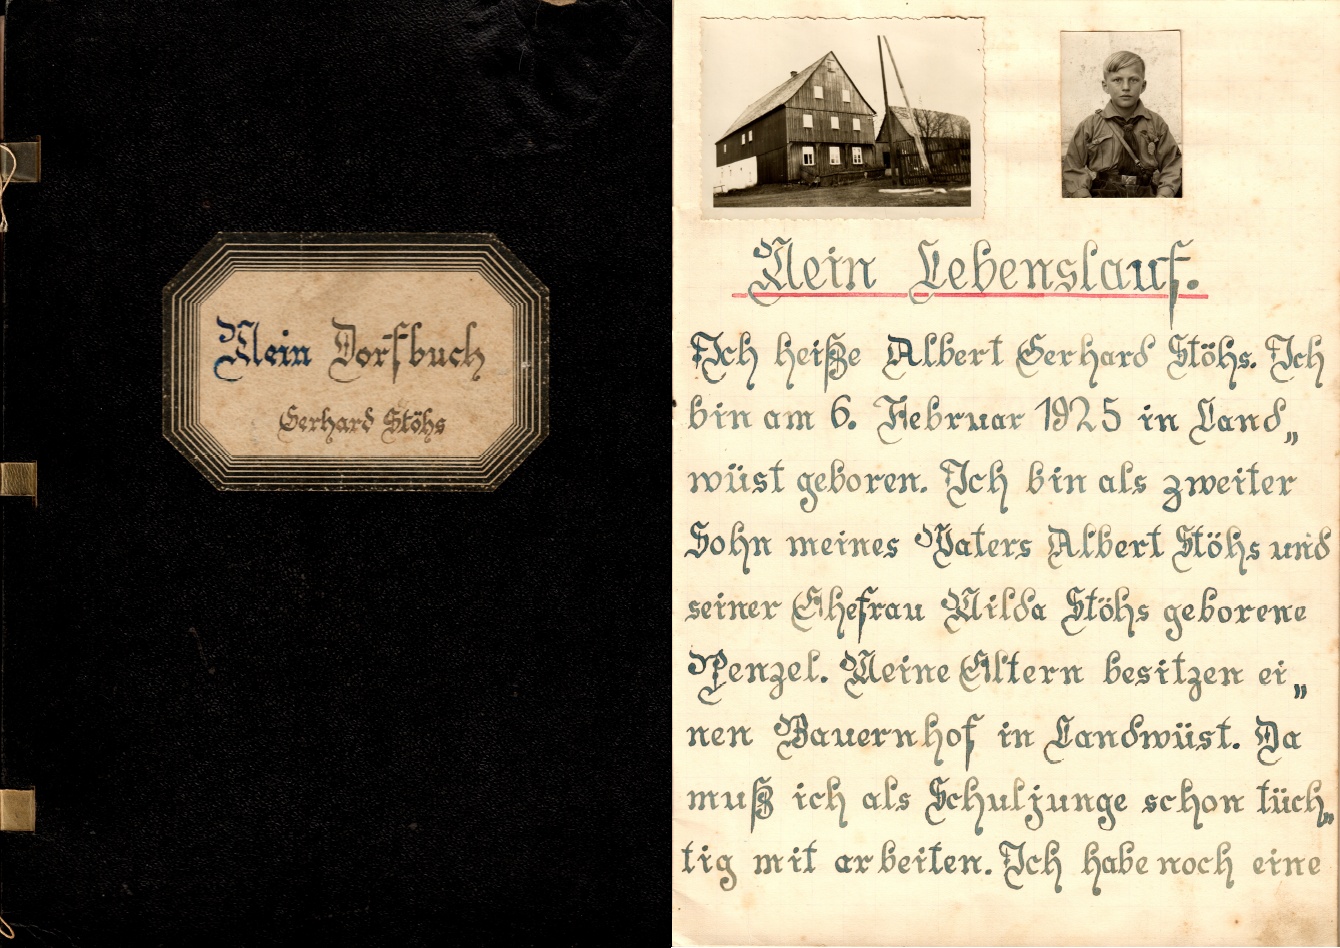 Mein Dorfbuch
Gerhard Stöhs
Mein Lebenslauf.
Ich heiße Albert Gerhard Stöhs. Ich
bin am 6. Februar 1925 in Land„
wüst geboren. Ich bin als zweiter
Sohn meines Vaters Albert Stöhs und
seiner Ehefrau Milda Stöhs geborene
Penzel. Meine Eltern besitzen ei„
nen Bauernhof in Landwüst. Da
muß ich als Schuljunge schon tüch„
tig mit arbeiten. Ich habe noch eine